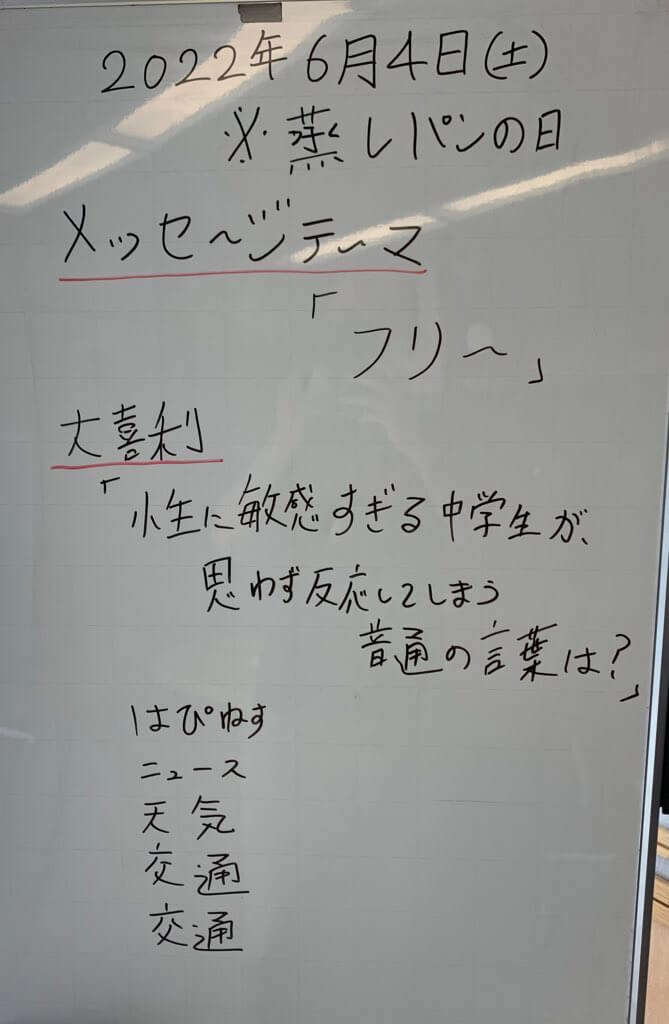 2022年6月4日(土)
※蒸しパンの日
メッセ〜ジテ〜マ
「フリ〜」
大喜利
「性に敏感すぎる中学生が、
思わず反応してしまう
普通の言葉は?」
はぴねす
ニュース
天気
交通
交通